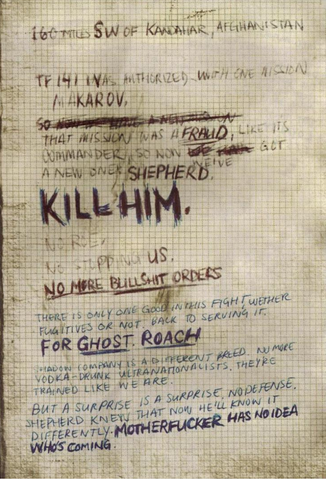 160 MILES SW OF KANDAHAR, AFGHANISTAN
TF 141 WAS AUTHORIZED WITH ONE MISSION
MAKAROV.
SO NOW
THAT MISSION WAS A FRAUD, LIKE ITS
COMMANDER, SO NOW WE'VE GOT
A NEW ONE: SHEPHERD.
KILL HIM.
NO ROE,
NO STOPPING US.
NO MORE BULLSHIT ORDERS
THERE IS ONLY ONE GOOD IN THIS FIGHT, WETHER
FUGITIVES OR NOT. BACK TO SERVING IT.
FOR GHOST. ROACH
SHADOW COMPANY IS A DIFFERENT BREED. NO MORE
VODKA-DRUNK ULTRANATIONALISTS. THEY'RE
TRAINED LIKE WE ARE.
BUT A SURPRISE IS A SURPRISE, NO DEFENSE.
SHEPHERD KNEW THAT NOW HE'LL KNOW IT
DIFFERENTLY. MOTHERFUCKER HAS NO IDEA
WHO'S COMING.